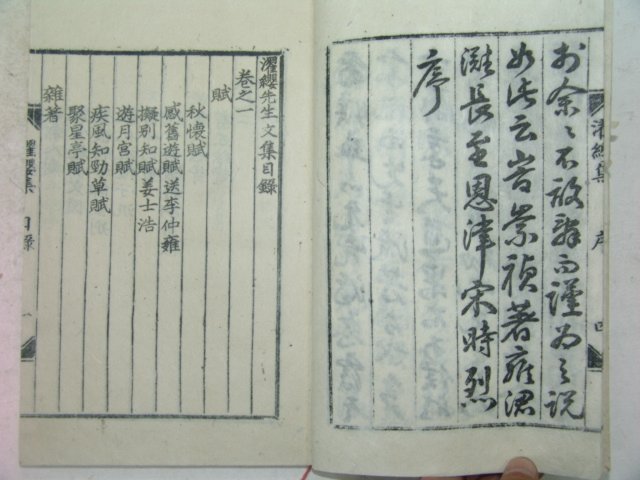 於余余不敢辭而謹為之說
如此云峕崇禎著雍涒
灘長至恩津宋時烈
序
濯纓集
序
四
濯纓先生文集目錄
卷之一
賦
秋懷賦
感舊遊賦送李仲雍
擬別知賦姜士浩
遊月宮賦
疾風知勁草賦
聚星亭賦
雜著
濯纓集
目錄
一